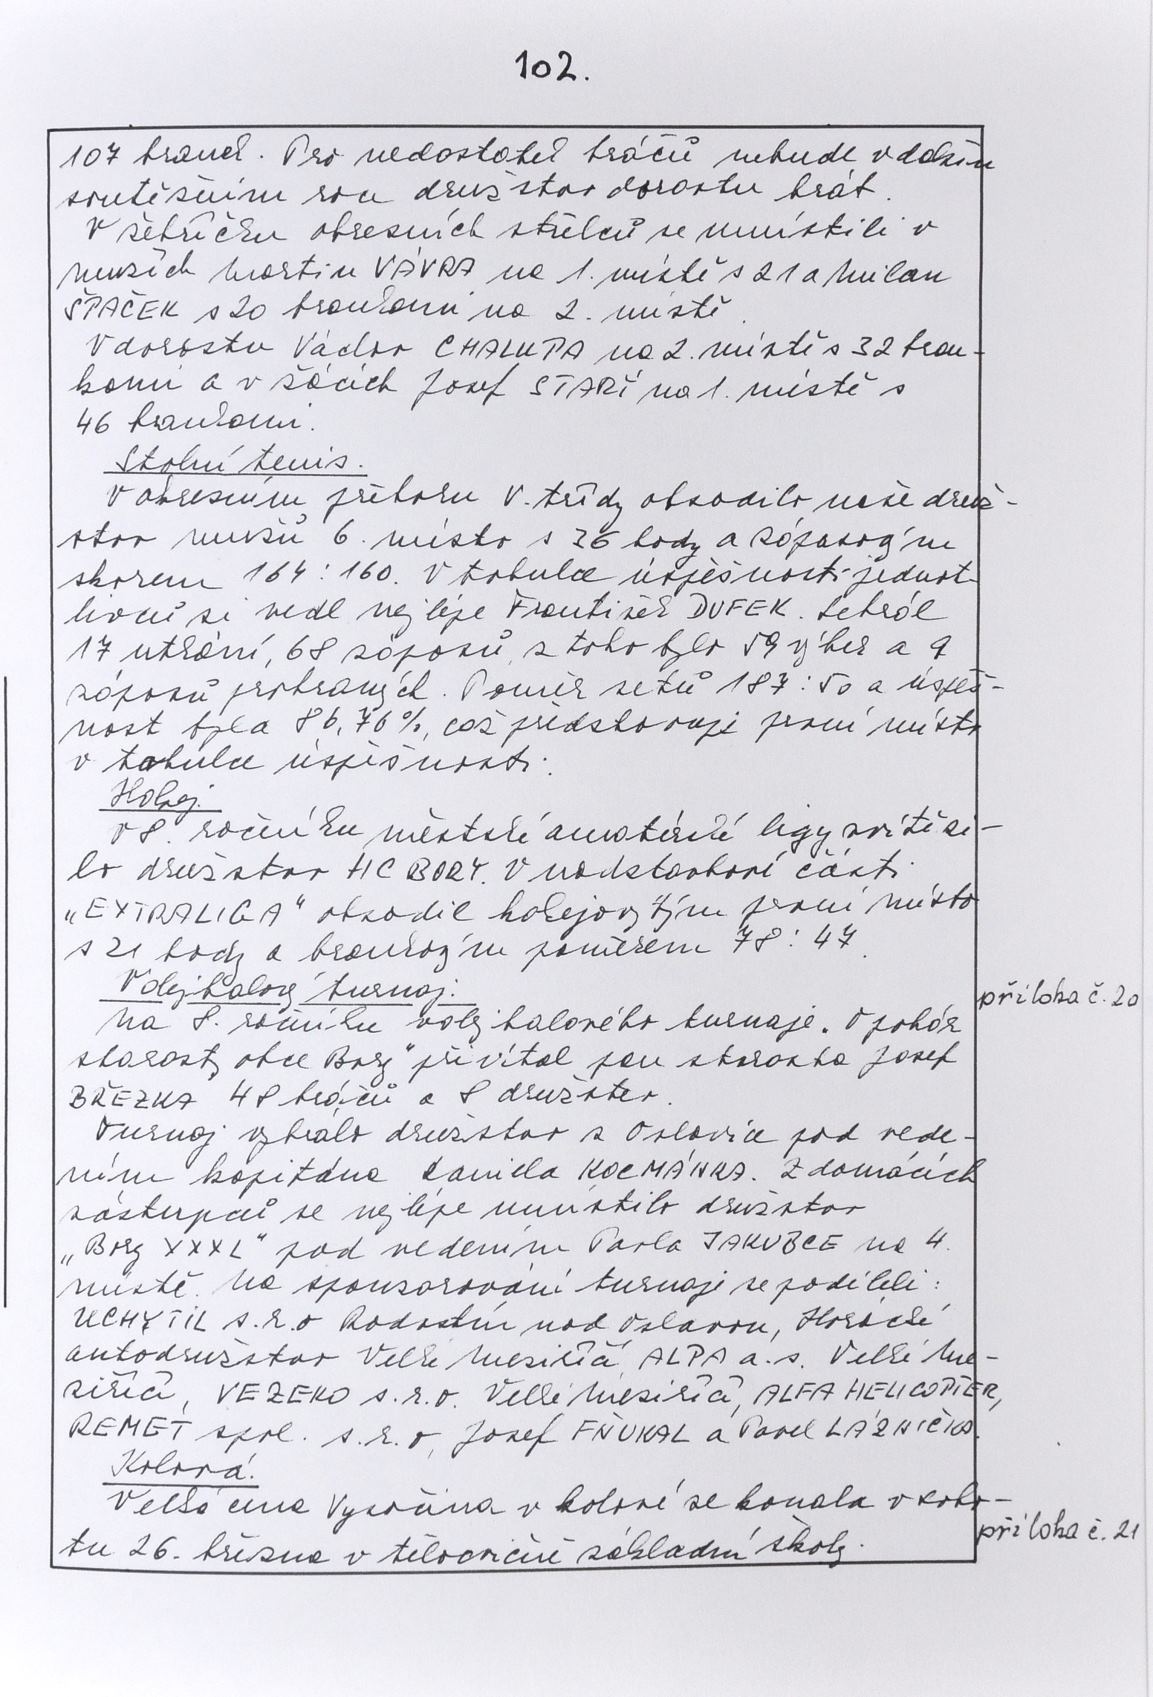 102.
107 branek. Pro nedostatek hráčů nebude v dalším
soutěžním roce družstvo dorostu hrát.
V žebříčku okresních střelců se umístili v
mužích Martin VÁVRA na 1. místě s 21 a Milan
ŠPAČEK s 20 brankami na 2. místě.
V dorostu Václav CHALUPA na 2. místě s 32 bran-
kami a v žácích Josef STARÝ na 1. místě s
46 brankami.
Stolní tenis.
V okresním přeboru V. třídy obsadilo naše druž-
stvo mužů 6. místo s 36 body a zápasovým
skorem 164 : 160. V tabulce úspěšnosti jednot-
livců si vedl nejlépe František DUFEK. Sehrál
17 utkání, 68 zápasů, z toho bylo 59 výher a 9
zápasů prohraných. Poměr setů 187 : 50 a úspěš-
nost byla 86,76%, což představuje první místo
v tabulce úspěšnosti.
Hokej.
V 8. ročníku městské amatérské ligy zvítězi-
lo družstvo HC BORY. V nadstavbové části
„EXTRALIGA" obsadil hokejový tým první místo
s 21 body a brankovým poměrem 78 : 47.
Volejbalový turnaj.
příloha č. 20
Na 8. ročníku volejbalového turnaje „O pohár
starosty obce Bory" přivítal pan starosta Josef
BŘEZKA 48 hráčů a 8 družstev.
Turnaj vyhrálo družstvo z Oslavice pod vede-
ním kapitána Daniela KOCMÁNKA. Z domácích
zástupců se nejlépe umístilo družstvo
„Bory XXXL" pod vedením Pavla JAKUBCE na 4.
místě. Na sponzorování turnaje se podíleli :
UCHYTIL s.r.o Radostín nad Oslavou, Horácké
autodružstvo Velké Meziříčí, ALPA a.s. Velké Me-
ziříčí, VEZEKO s.r.o. Velké Meziříčí, ALFA HELICOPTER,
REMET spol. s.r.o, Josef FŇUKAL a Pavel LÁZNIČKA.
Kolová.
Velká cena Vysočina v kolové se konala v sobo-
příloha č. 21
tu 26. března v tělocvičně základní školy.